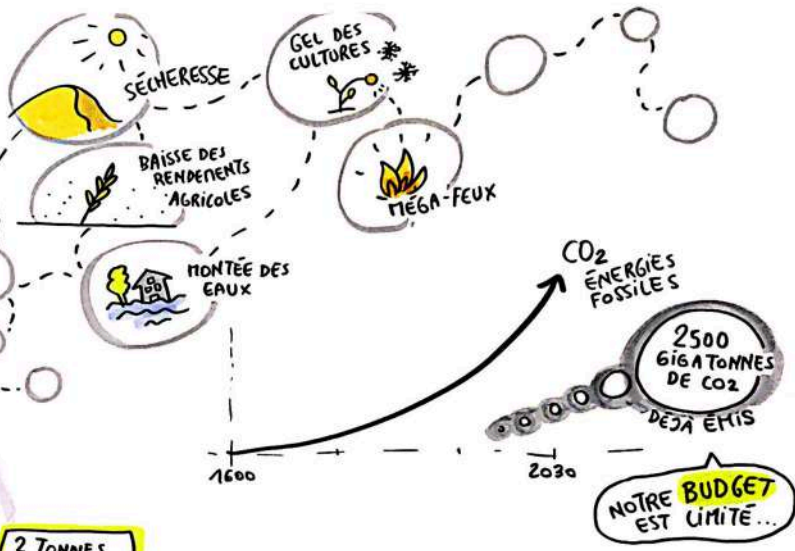 SÉCHERESSE
GEL DES
CULTURES
BAISSE DES
RENDEMENTS
AGRICOLES
MÉGA-FEUX
MONTÉE DES
EAUX
CO2
ÉNERGIES
FOSSILES
2500
GIGATONNES
DE CO2
DÉJÀ ÉMIS
1600
2030
NOTRE BUDGET
EST LIMITÉ...
2 TONNES